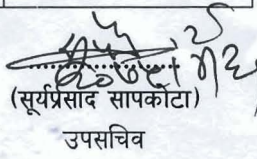 (सूर्यप्रसाद सापकोटा)
उपसचिव